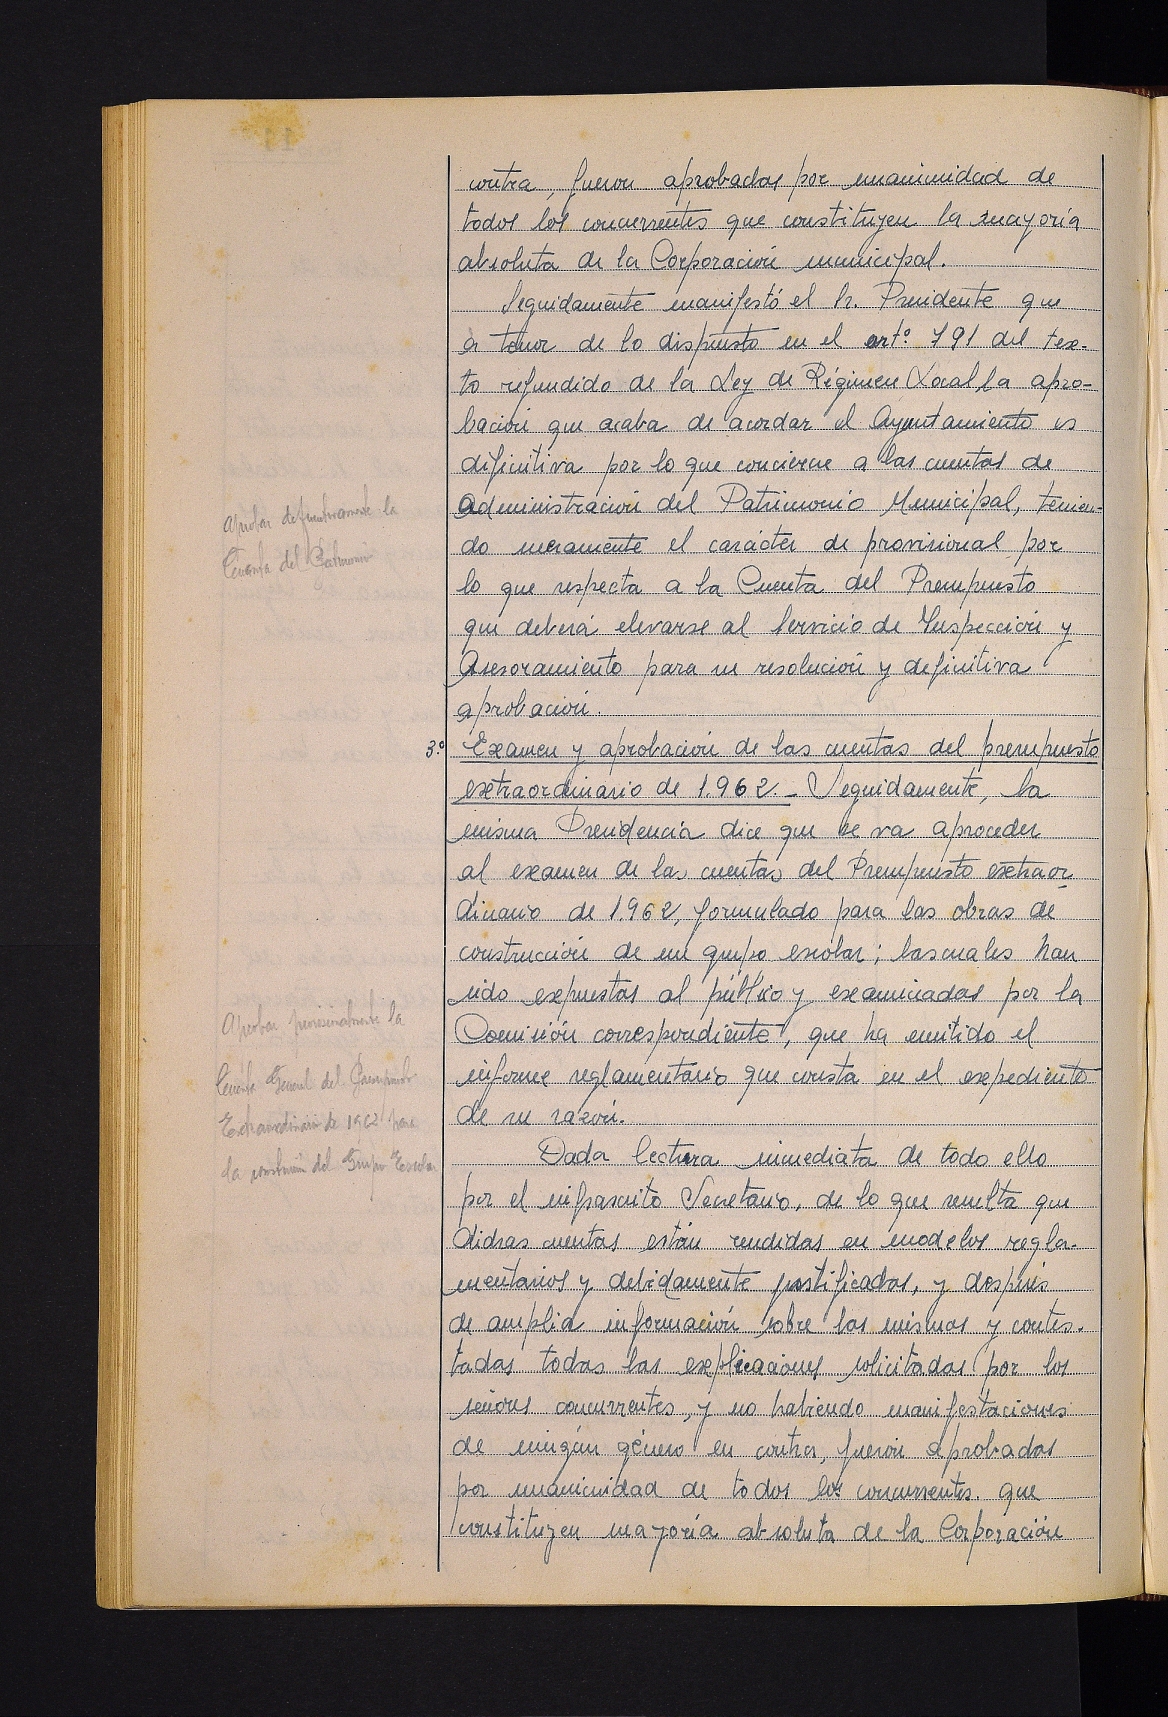 contra, fueron aprobados por unanimidad de
todos los concurrentes que constituyen la mayoría
absoluta de la Corporación municipal.
Seguidamente manifestó el Sr. Presidente que
a tenor de lo dispuesto en el artº. 791 del tex-
to refundido de la Ley de Régimen Local, la apro-
bación que acaba de acordar el Ayuntamiento es
difinitiva por lo que concierne a las cuentas de
Administración del Patrimonio Municipal, tenien-
do meramente el carácter de provisional por
lo que respecta a la Cuenta del Presupuesto
que deberá elevarse al Servicio de Inspección y
Asesoramiento para su resolución y definitiva
aprobación.
Aprobar definitivamente la
Cuenta del Patrimonio
3.º Examen y aprobación de las cuentas del presupuesto
extraordinario de 1.962.- Seguidamente, la
misma Presidencia dice que se va aproceder
al examen de las cuentas del Presupuesto extraor-
dinario de 1.962, formulado para las obras de
construcción de un grupo escolar; lascuales han
sido expuestas al público y examinadas por la
Comisión correspondiente, que ha emitido el
informe reglamentario que consta en el expediente
de su razón.
Aprobar provisionalmente la
Cuenta General del Presupuesto
Extraordinario de 1962 para
la construcción del Grupo Escolar
Dada lectura inmediata de todo ello
por el infrascrito Secretario, de lo que resulta que
dichas cuentas están rendidas en modelos regla-
mentarios y debidamente justificadas, y después
de amplia información sobre las mismas y contes-
tadas todas las explicaciones solicitadas por los
señores concurrentes, y no habiendo manifestaciones
de ningún género en contra, fueron aprobadas
por unanimidad de todos los concurrentes. que
constituyen mayoría absoluta de la Corporación